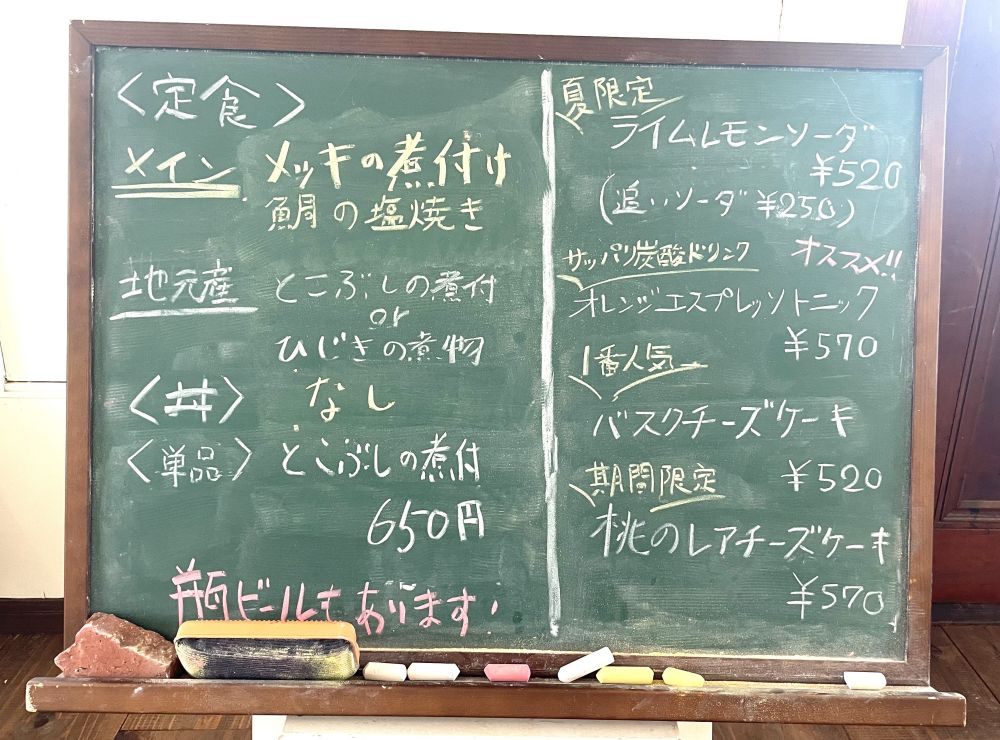 〈定食〉
メイン メッキの煮付け
鯛の塩焼き
地元産 とこぶしの煮付
or
ひじきの煮物
〈丼〉 なし
〈単品〉 とこぶしの煮付
650円
瓶ビールもあります!
夏限定
ライムレモンソーダ
¥520
(追いソーダ ¥250)
サッパリ炭酸ドリンク オススメ!!
オレンジエスプレッソトニック
¥570
1番人気
バスクチーズケーキ
¥520
期間限定
桃のレアチーズケーキ
¥570